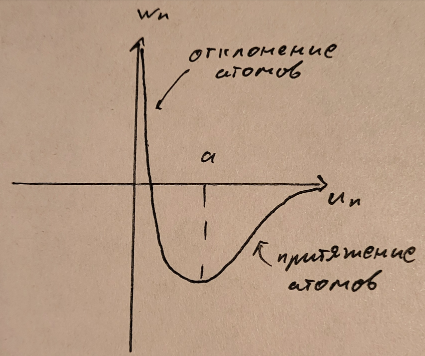 Wп
отклонение
атомов
a
Uп
притяжение
атомов